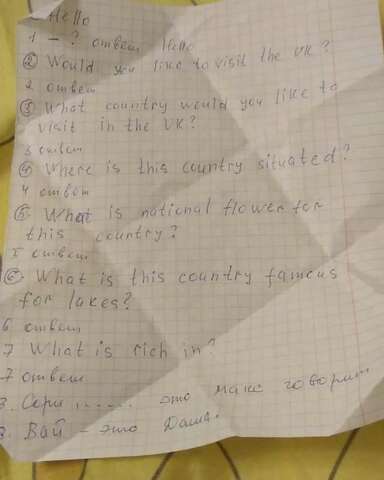 Hello
1 — ? ответ Hello
② Would you like to visit the UK?
2 ответ
③ What country would you like to
visit in the UK?
3 ответ
④ Where is this country situated?
4 ответ
⑤ What is national flower for
this country?
5 ответ
⑥ What is this country famous
for lakes?
6 ответ
7 What is rich in?
7 ответ
8. Серж ...... это макс говорит
8. Вай - это Даша.